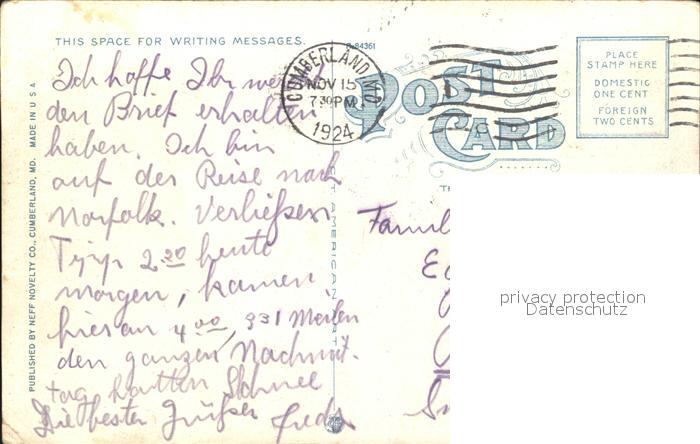 THIS SPACE FOR WRITING MESSAGES.
R-84361
CUMBERLAND, MD.
NOV 15
7 30 PM
1924
POST CARD
PLACE
STAMP HERE
DOMESTIC
ONE CENT
FOREIGN
TWO CENTS
PUBLISHED BY NEFF NOVELTY CO., CUMBERLAND, MD. MADE IN U S A
Ich hoffe Ihr
den Brief erhalten
haben. Ich bin
auf der Reise nach
Norfolk. Verließen
2.20 heute
morgen, kamen
hier an 4 00, 331 Meilen
den ganzen Nachmit-
tag hatten Schnee
Die besten Grüße
AMERICAN ART
Famil
privacy protection
Datenschutz